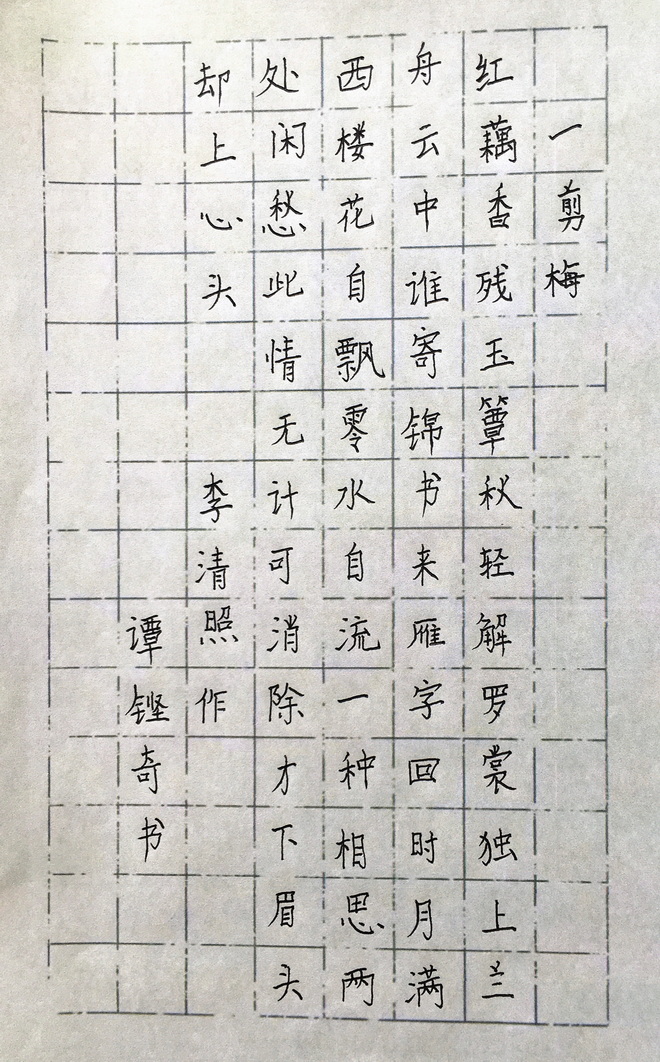 一剪梅
红藕香残玉簟秋轻解罗裳独上兰
舟云中谁寄锦书来雁字回时月满
西楼花自飘零水自流一种相思两
处闲愁此情无计可消除才下眉头
却上心头 李清照作
谭铿奇书